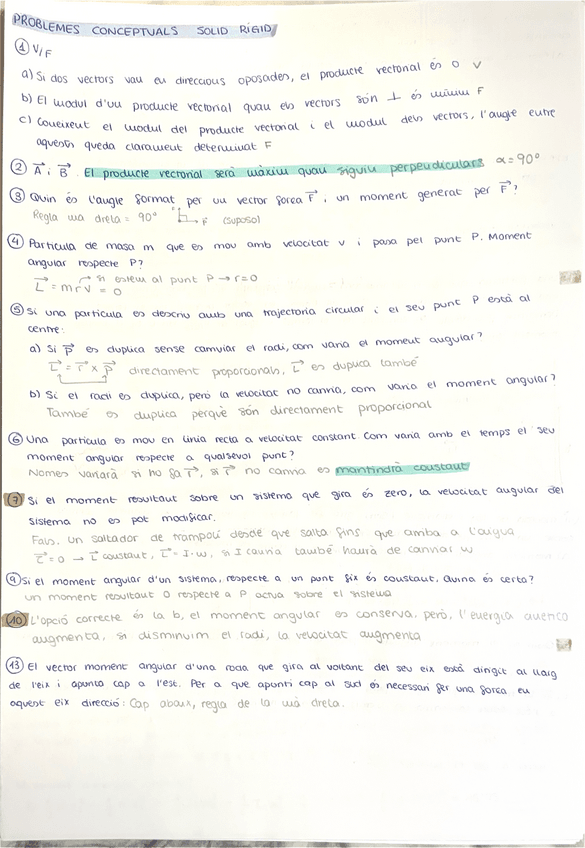 PROBLEMES CONCEPTUALS SOLID RÍGID
① V/F
a) Si dos vectors van en direccions oposades, el producte vectorial és 0 V
b) El mòdul d'un producte vectorial quan els vectors són ⊥ és mínim F
c) Coneixent el mòdul del producte vectorial i el mòdul dels vectors, l'angle entre
aquests queda clarament determinat F
② A⃗ i B⃗. El producte vectorial serà màxim quan siguin perpendiculars α = 90°
③ Quin és l'angle format per un vector força F⃗, i un moment generat per F⃗?
Regla mà dreta = 90° F (suposo)
④ Partícula de masa m que es mou amb velocitat v i passa pel punt P. Moment
angular respecte P?
L⃗ = m r v = 0 si estem al punt P → r=0
⑤ Si una partícula es descriu amb una trajectòria circular i el seu punt P està al
centre:
a) Si P⃗ es duplica sense canviar el radi, com varia el moment angular?
L⃗ = r⃗ x P⃗ directament proporcionals, L⃗ es duplica també
b) Si el radi es duplica, però la velocitat no canvia, com varia el moment angular?
També es duplica perquè són directament proporcional
⑥ Una partícula es mou en línia recta a velocitat constant. Com varia amb el temps el seu
moment angular respecte a qualsevol punt?
Només variarà si ho fa r⃗, si r⃗ no canvia es mantindrà constant
⑦ Si el moment resultant sobre un sistema que gira és zero, la velocitat angular del
sistema no es pot modificar.
Fals, un saltador de trampolí desde que salta fins que arriba a l'aigua
τ⃗ = 0 → L⃗ constant, L⃗ = I·ω, si I canvia també haurà de canviar ω
⑨ Si el moment angular d'un sistema, respecte a un punt fix és constant, quina és certa?
un moment resultant 0 respecte a P actua sobre el sistema
⑩ L'opció correcte és la b, el moment angular es conserva, però, l'energia cinètica
augmenta, si disminuim el radi, la velocitat augmenta
⑬ El vector moment angular d'una roda que gira al voltant del seu eix està dirigit al llarg
de l'eix i apunta cap a l'est. Per a que apunti cap al sud és necessari fer una força en
aquest eix direcció: Cap abaix, regla de la mà dreta.